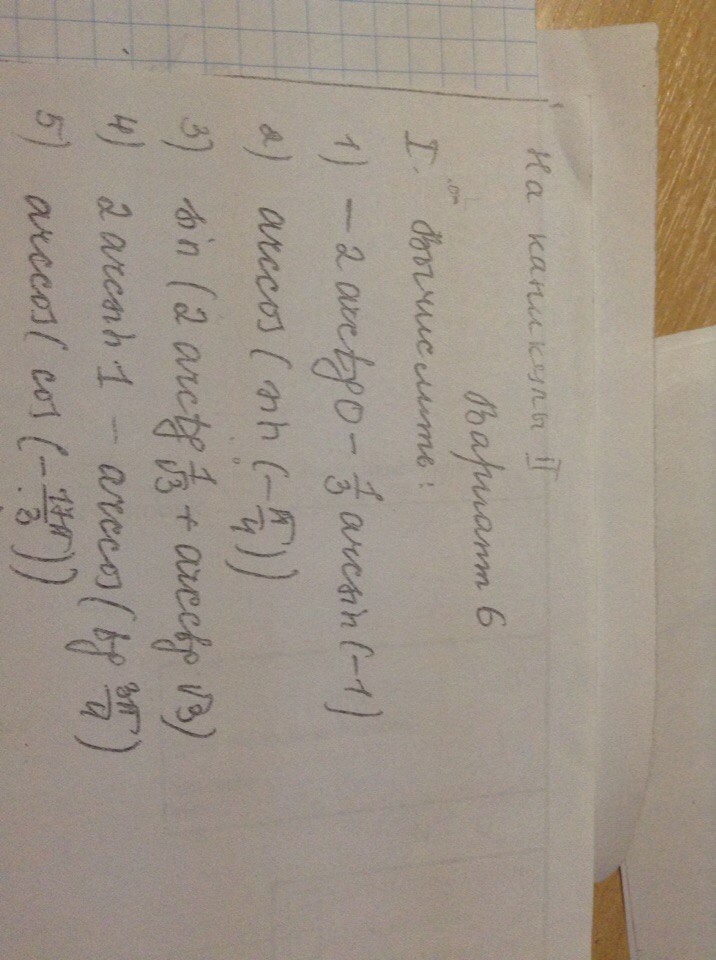 На каникулы II
Вариант 6
I. Вычислить:
1) -2 arctg 0 - 1/3 arcsin(-1)
2) arccos(sin(-π/4))
3) sin(2 arctg 1/√3 + arcctg √3)
4) 2 arcsin 1 - arccos(tg 3π/4)
5) arccos(cos(-17π/3))